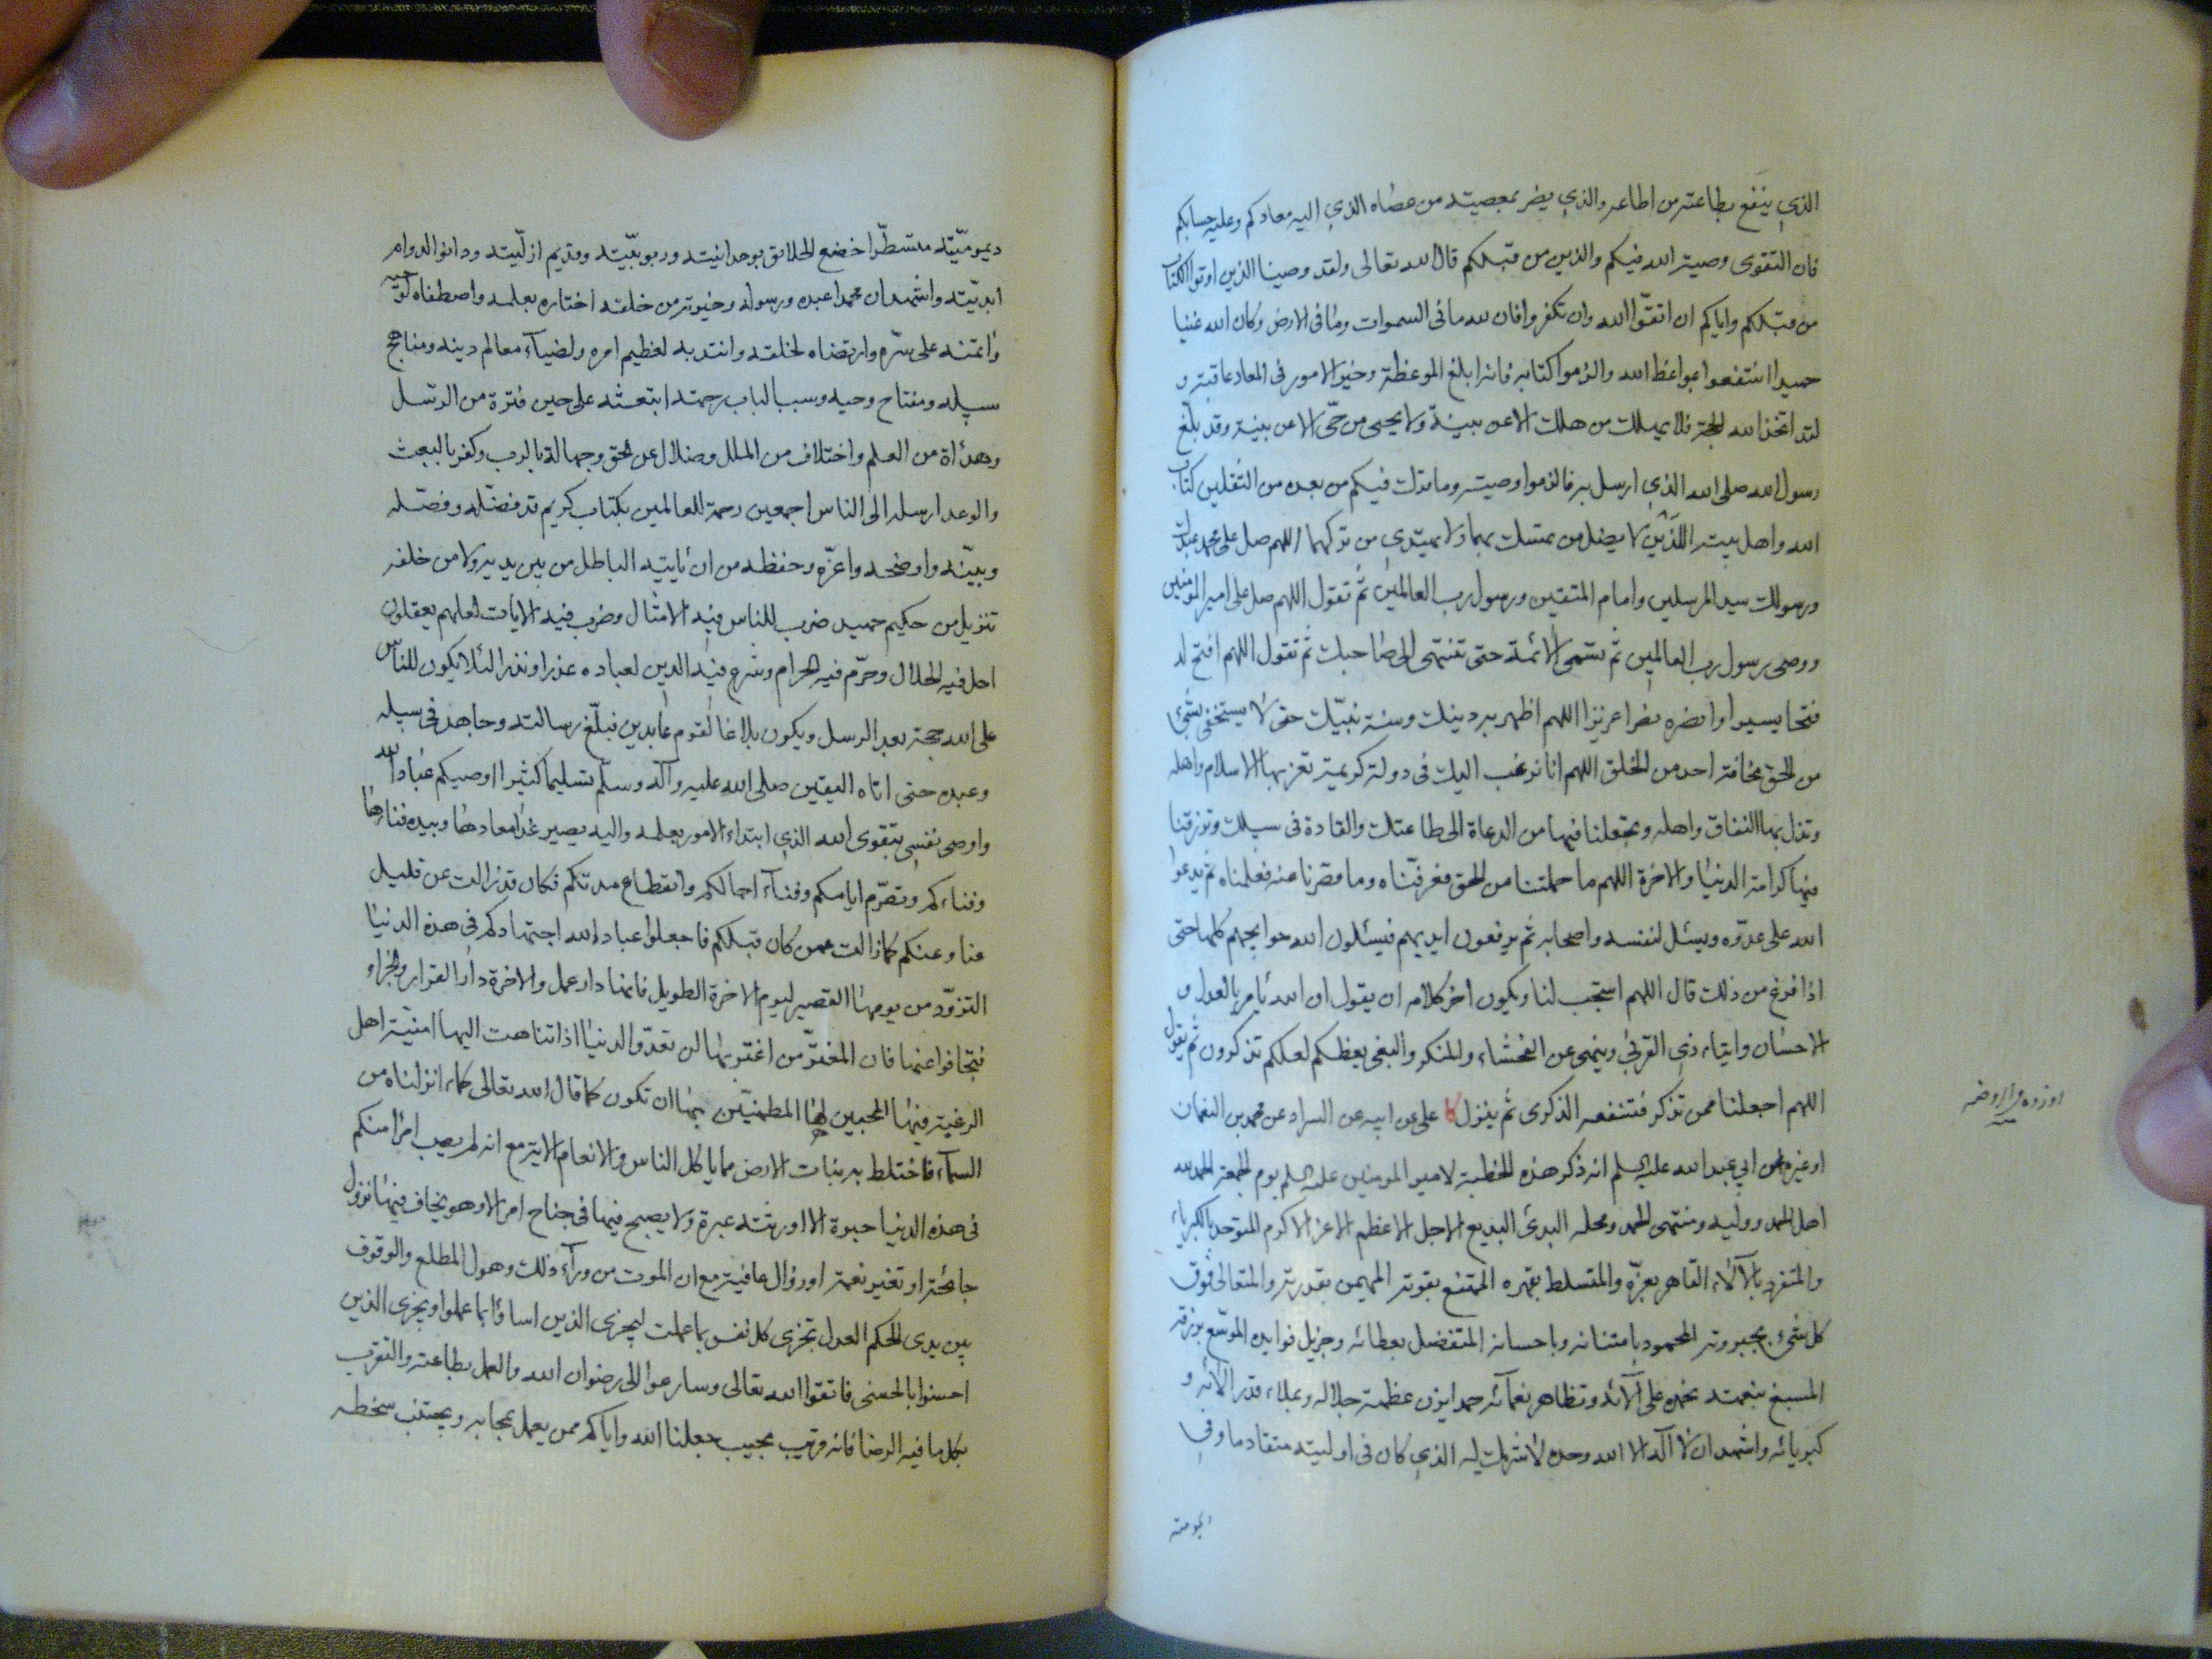 الذي ينفع بطاعته من اطاعه والذي يضر بمعصيته من عصاه الذي اليه معادكم وعليه حسابكم
فان التقوى وصية الله فيكم والذين من قبلكم قال الله تعالى ولقد وصينا الذين اوتوا الكتاب
من قبلكم واياكم ان اتقوا الله وان تكفروا فان لله ما في السموات وما في الارض وكان الله غنيا
حميدا انتفعوا بمواعظ الله والزموا كتابه فانه ابلغ الموعظة وخير الامور في المعاد عاقبة و
لقد اتخذ الله الحجة فلا يهلك من هلك الا عن بينة ولا يحيى من حي الا عن بينة وقد بلغ
رسول الله صلى الله الذي ارسل به فالزموا وصيته وما ترك فيكم من بعده من الثقلين كتاب
الله واهل بيته اللذين لا يضل من تمسك بهما ولا يهتدي من تركهما اللهم صل على محمد عبدك
ورسولك سيد المرسلين وامام المتقين ورسول رب العالمين ثم تقول اللهم صل على امير المؤمنين
ووصي رسول رب العالمين ثم تسمي الائمة حتى تنتهي الى صاحبك ثم تقول اللهم افتح له
فتحا يسيرا وانصره نصرا عزيزا اللهم اظهر به دينك وسنة نبيك حتى لا يستخفي بشيء
من الحق مخافة احد من الخلق اللهم انا نرغب اليك في دولة كريمة تعز بها الاسلام واهله
وتذل بها النفاق واهله وتجعلنا فيها من الدعاة الى طاعتك والقادة في سبيلك وترزقنا
فيها كرامة الدنيا والاخرة اللهم ما حملتنا من الحق فعرفناه وما قصرنا عنه فعلمناه ثم يدعوا
الله على عدوه ويسئل لنفسه واصحابه ثم يرفعون ايديهم فيسئلون الله حوايجهم كلها حتى
اذا فرغ من ذلك قال اللهم استجب لنا ويكون اخر كلامه ان يقول ان الله يامر بالعدل و
الاحسان وايتاء ذي القربى وينهى عن الفحشاء والمنكر والبغي يعظكم لعلكم تذكرون ثم يقول
اللهم اجعلنا ممن تذكر فتنفعه الذكرى ثم ينزل كا علي عن ابيه عن السراد عن محمد بن النعمان
او غيره عن ابي عبد الله عليه السلم انه ذكر هذه الخطبة لامير المومنين عليه السلم يوم الجمعة الحمد لله
اهل الحمد ووليه ومنتهى الحمد ومحله البدئ البديع الاجل الاعظم الاعز الاكرم المتوحد بالكبرياء
والمتفرد بالآلاء القاهر بعزه والمتسلط بقهره الممتنع بقوته المهيمن بقدرته والمتعالى فوق
كل شيء بجبروته المحمود بامتنانه وباحسانه المتفضل بعطائه وجزيل فوايده الموسع برزقه
المسبغ بنعمته نحمده على آلائه وتظاهر نعمآئه حمدا يزن عظمة جلاله ويملاء قدر آلائه و
كبريائه واشهد ان لا اله الا الله وحده لا شريك له الذي كان في اوليته متقادما وفي
ديموميته متسطرا خضع الخلائق بوحدانيته وربوبيته وقديم ازليته ودانوا لدوام
ابديته واشهد ان محمدا عبده ورسوله وخيرته من خلقه اختاره بعلمه واصطفاه لوحيه
وائتمنه على سره وارتضاه لخلقه وانتدبه لعظيم امره ولضيآء معالم دينه ومناهج
سبيله ومفتاح وحيه وسببا لباب رحمته ابتعثه على حين فترة من الرسل
وهدأة من العلم واختلاف من الملل وضلال عن الحق وجهالة بالرب وكفر بالبعث
والوعد ارسله الى الناس اجمعين رحمة للعالمين بكتاب كريم قد فضله وفصله
وبينه واوضحه واعزه وحفظه من ان ياتيه الباطل من بين يديه ولا من خلفه
تنزيل من حكيم حميد ضرب للناس فيه الامثال وصرف فيه الايات لعلهم يعقلون
احل فيه الحلال وحرم فيه الحرام وشرع فيه الدين لعباده عذرا ونذرا لئلا يكون للناس
على الله حجة بعد الرسل ويكون بلاغا لقوم عابدين فبلغ رسالته وجاهد في سبيله
وعبده حتى اتاه اليقين صلى الله عليه وآله وسلم تسليما كثيرا اوصيكم عباد الله
واوصي نفسي بتقوى الله الذي ابتداء الامور بعلمه واليه يصير غدا معادها وبيده فناؤها
وفناءكم وتصرم ايامكم وفنآء اجالكم وانقطاع مدتكم فكان قد زالت عن قليل
عنا وعنكم كما زالت عمن كان قبلكم فاجعلوا عباد الله اجتهادكم في هذه الدنيا
التزود من يومها القصير ليوم الاخرة الطويل فانها دار عمل والاخرة دار القرار والجزاء
فتجافوا عنها فان المغتر من اغتر بها لن تعدوا الدنيا اذا تناهت اليها امنية اهل
الرغبة فيها المحبين لها المطمئنين بها ان تكون كما قال الله تعالى كماء انزلناه من
السمآء فاختلط به نبات الارض مما ياكل الناس والانعام الاية مع انه لم يصب امرأ منكم
في هذه الدنيا حبرة الا اورثته عبرة ولا يصبح فيها في جناح امن الا وهو يخاف فيها نزول
جائحة او تغير نعمة او زوال عافية مع ان الموت من ورآء ذلك وهول المطلع والوقوف
بين يدي الحكم العدل تجزى كل نفس بما عملت ليجزي الذين اساؤا بما عملوا ويجزي الذين
احسنوا بالحسنى فاتقوا الله تعالى وسارعوا الى رضوان الله والعمل بطاعته والتقرب
بكل ما فيه الرضا فانه قريب مجيب جعلنا الله واياكم ممن يعمل بمحابه ويجتنب سخطه